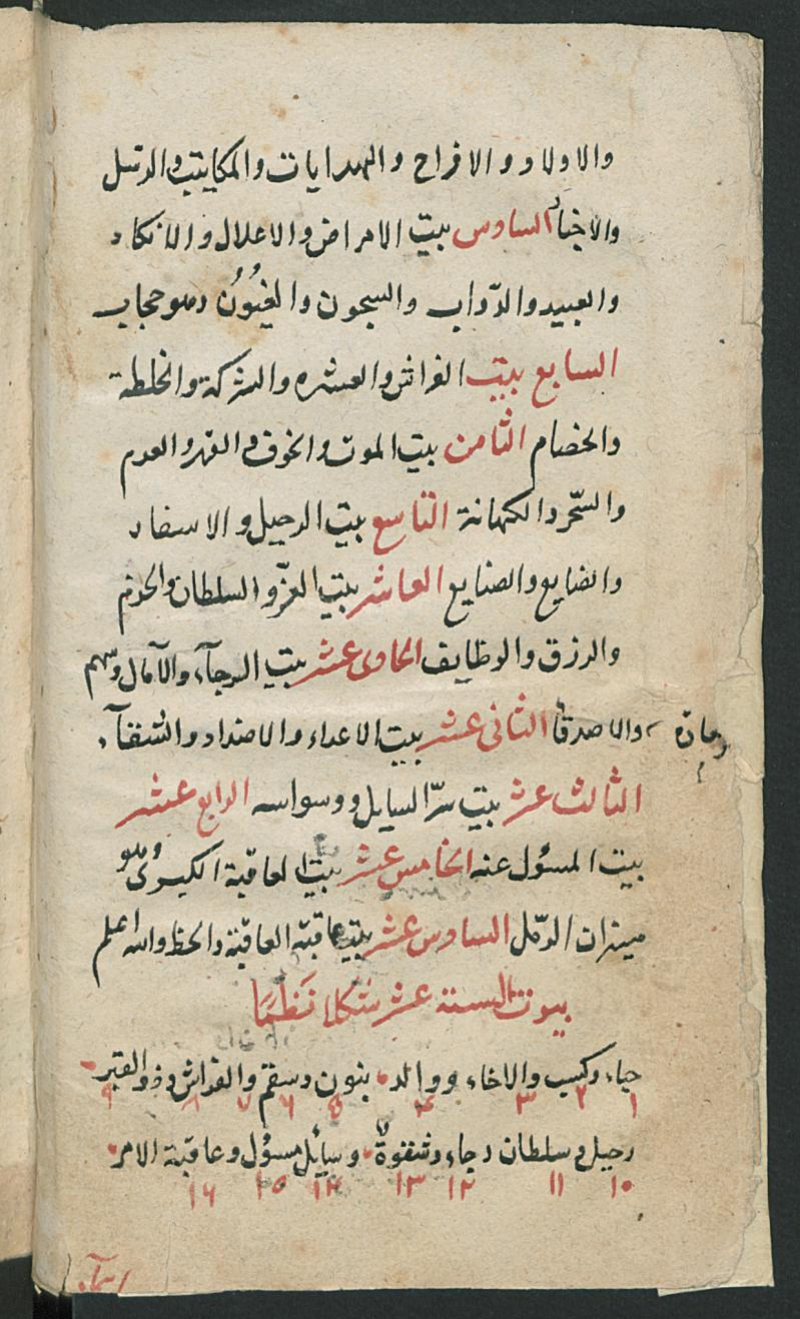 والاولاد والافراح والهدايات والمكاتيب والرسل
والاخبار السادس بيت الامراض والاعلال والانكاد
والعبيد والدّواب والسجون والغبُون وهو حجاب
السابع بيت الفراش والعشره والشركة والخلطة
والخصام الثامن بيت الموت والخوف والقهر والعدم
والسّحر والكهانة التاسع بيت الرحيل والاسفار
والضايع والصنايع العاشر بيت العزّ والسلطان والحرتم
والرزق والوظايف الحادى عشر بيت الرجآء والآمال وسهم
والاصدقا الثانى عشر بيت الاعداء والاضداد والشقآء
الثالث عشر بيت سرّ السايل ووسواسه الرابع عشر
بيت المسؤل عنه الخامس عشر بيت العاقبة الكبرى وهو
ميزان الرّمل السادس عشر بيت عاقبة العاقبة والحظ والله اعلم
بيوت الستة عشر شكلا نَظْمًا
حياء وكسب والاخاء ووالد بنون وسقم والفراش وذو القبر
١ ٢ ٣ ٤ ٥ ٦ ٧ ٨ ٩
رحيل وسلطان رجاء وشقوةٌ وسايل مسؤل وعاقبة الامر
١٠ ١١ ١٢ ١٣ ١٤ ١٥ ١٦
اسمآء